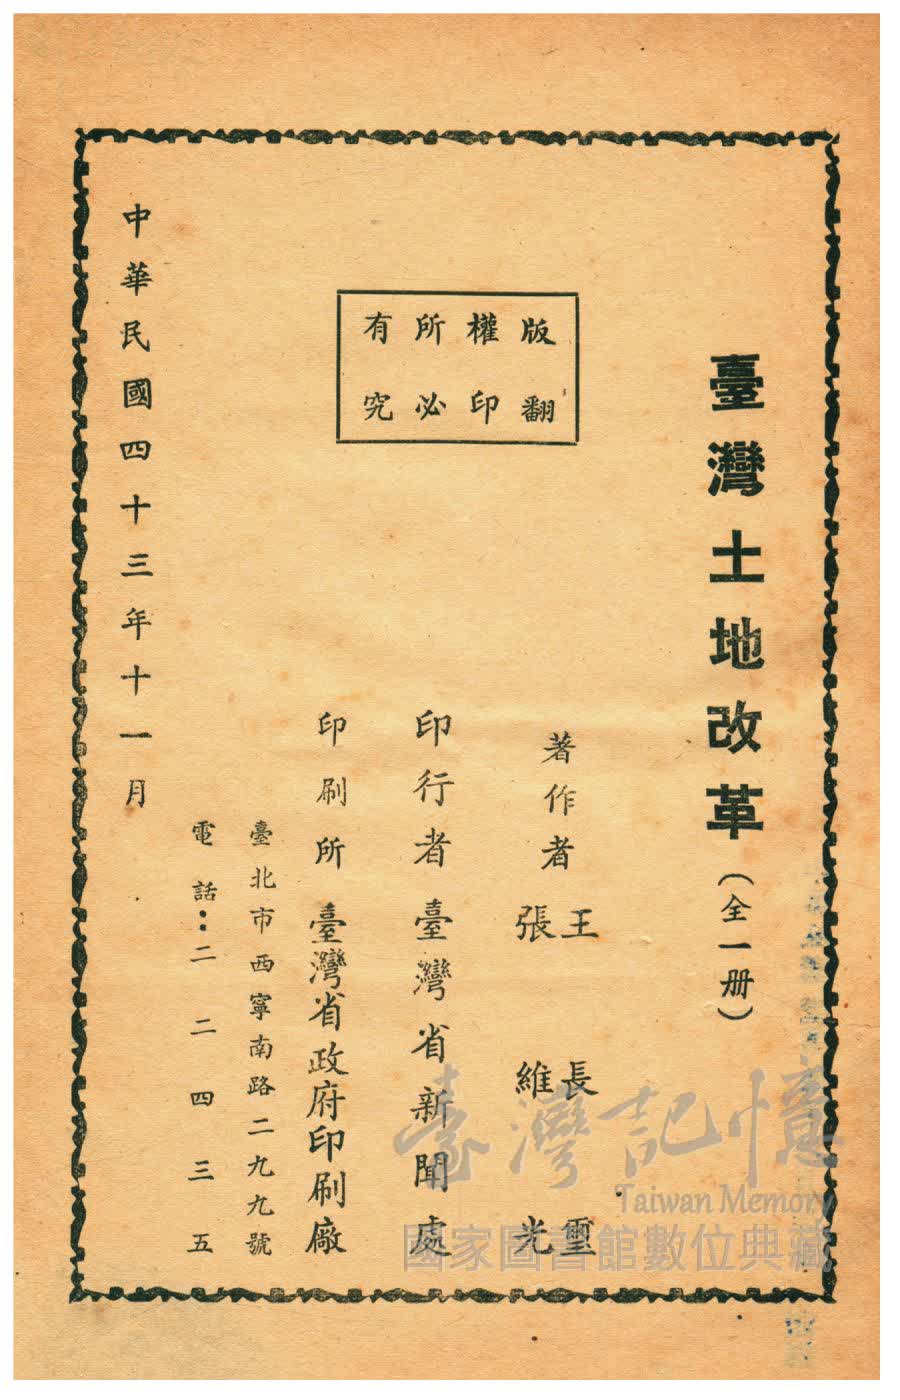 臺灣土地改革(全一册)
版權所有
翻印必究
著作者 王長璽
張維光
印行者 臺灣省新聞處
印刷所 臺灣省政府印刷廠
臺北市西寧南路二九九號
電話:二二四三五
中華民國四十三年十一月
臺灣記憶
Taiwan Memory
國家圖書館數位典藏